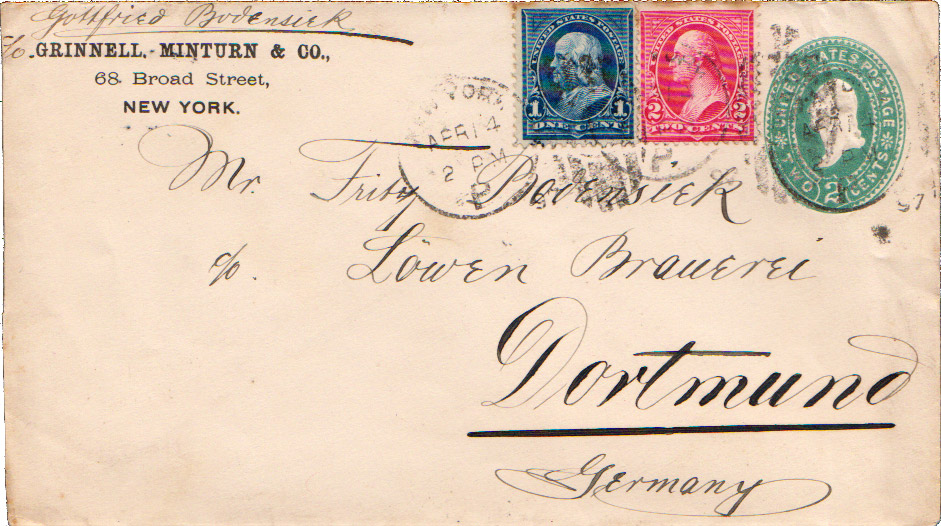 Gottfried Bodensiek
c/o. GRINNELL, MINTURN & CO.,
68 Broad Street,
NEW YORK.
UNITED STATES POSTAGE
1 1
ONE CENT
UNITED STATES POSTAGE
2 2
TWO CENTS
UNITED STATES POSTAGE
TWO 2 CENTS
NEW YORK
APR 14
2 PM
P
APR 14
2 P
97
Mr. Fritz Bodensiek
c/o. Löwen Brauerei
Dortmund
Germany